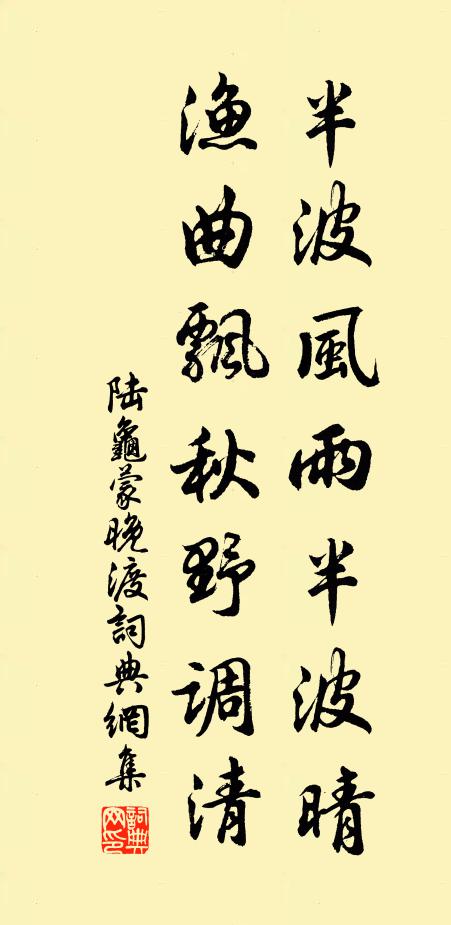 半波風雨半波晴
漁曲飄秋野调清
陆龜蒙晚渡詞典網集
詞典网印